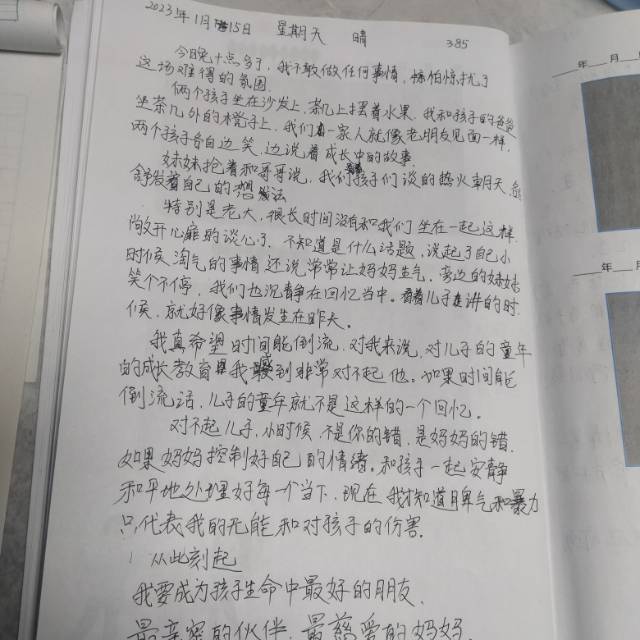 2023年1月15日 星期天 晴 385
今晚十点多了,我不敢做任何事情,怕惊扰了
这场难得的氛围.
俩个孩子坐在沙发上,茶几上摆着水果,我和孩子的爸爸
坐茶几外的木凳子上,我们一家人就像老朋友见面一样,
两个孩子自边笑,边说着成长中的故事.
妹妹抢着和哥哥说,我们孩子们谈的热火朝天,各
舒发着自己的想法
特别是老大,很长时间没有和我们坐在一起这样
敞开心扉的谈心了,不知道是什么话题,说起了自己小
时候,淘气的事情还说常常让妈妈生气,旁边的妹妹
笑个不停,我们也沉静在回忆当中.看着儿子在讲的时
候,就好像事情发生在昨天。
我真希望时间能倒流,对我来说,对儿子的童年
的成长教育我感到非常对不起他。如果时间能
倒流话,儿子的童年就不是这样的一个回忆。
对不起儿子,小时候,不是你的错,是妈妈的错.
如果妈妈控制好自己的情绪。和孩子一起安静
和平地处理好每一个当下,现在我才知道脾气和暴力
只代表我的无能和对孩子的伤害.
从此刻起
我要成为孩子生命中最好的朋友.
最亲密的伙伴,最慈爱的妈妈.
年 月
年 月